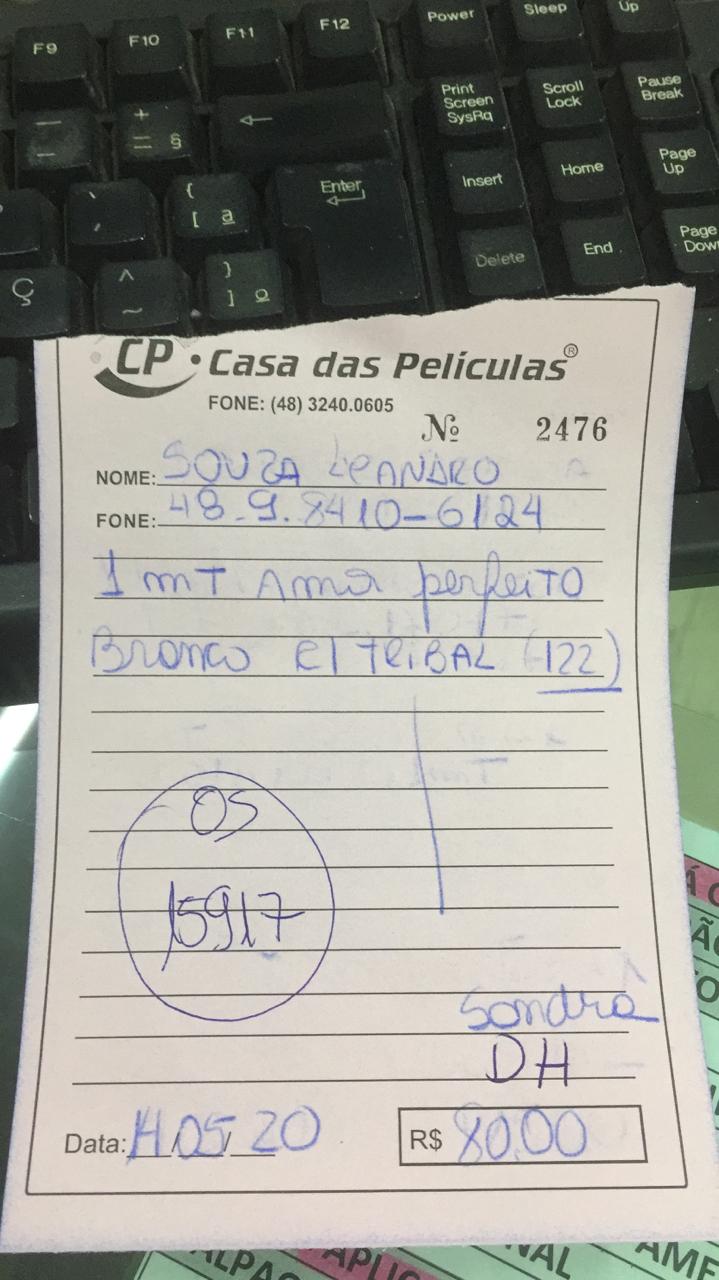 F9 F10 F11 F12 Power Sleep Up
Print Screen SysRq Scroll Lock Pause Break
+ = §
Enter Insert Home Page Up
{ [ ª
Delete End
} ] º
Ç ^ ~
CP • Casa das Películas®
FONE: (48) 3240.0605
Nº 2476
NOME: SOUZA LEANDRO
FONE: 48.9.8410-6124
1 mT Amor perfeito
Bronco el TRiBAL (122)
OS
15917
Sondra
DH
Data: /05/20
R$ 80.00